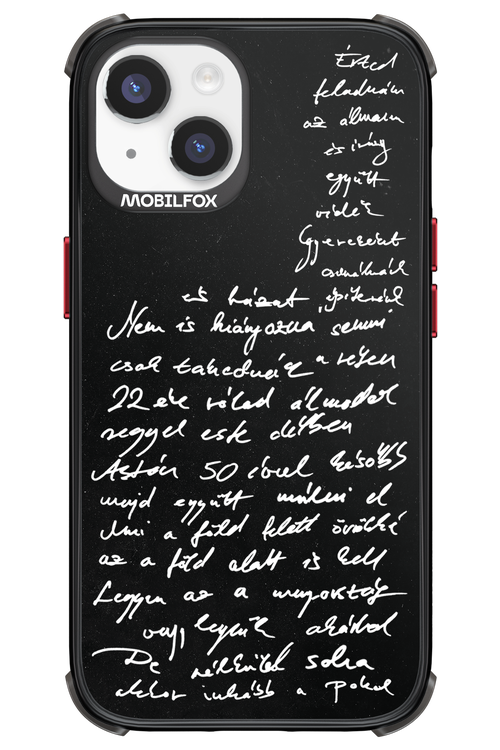 MOBILFOX
Érted
feladnám
az álmaim
és így
együtt
vidék
Gyereket
csinálnánk
és házat építenénk
Nem is hiányozna semmi
csak takednék a réten
22 éve rólad álmodok
reggel este délben
Aztán 50 évvel később
majd együtt múlni el
Ami a föld felett örökké
az a föld alatt is kell
Legyen az a mennyország
vagy legyünk akárhol
De nélküled soha
akkor inkább a Pokol